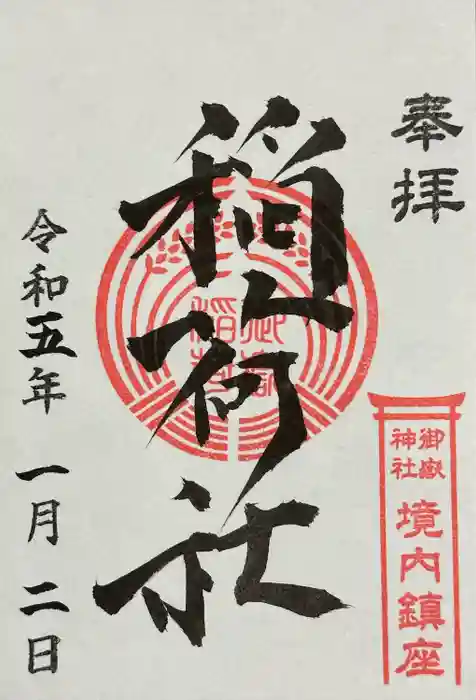 奉拝
御嶽
神社
境内鎮座
稲荷社
御嶽
稲荷
令和五年 一月 二日